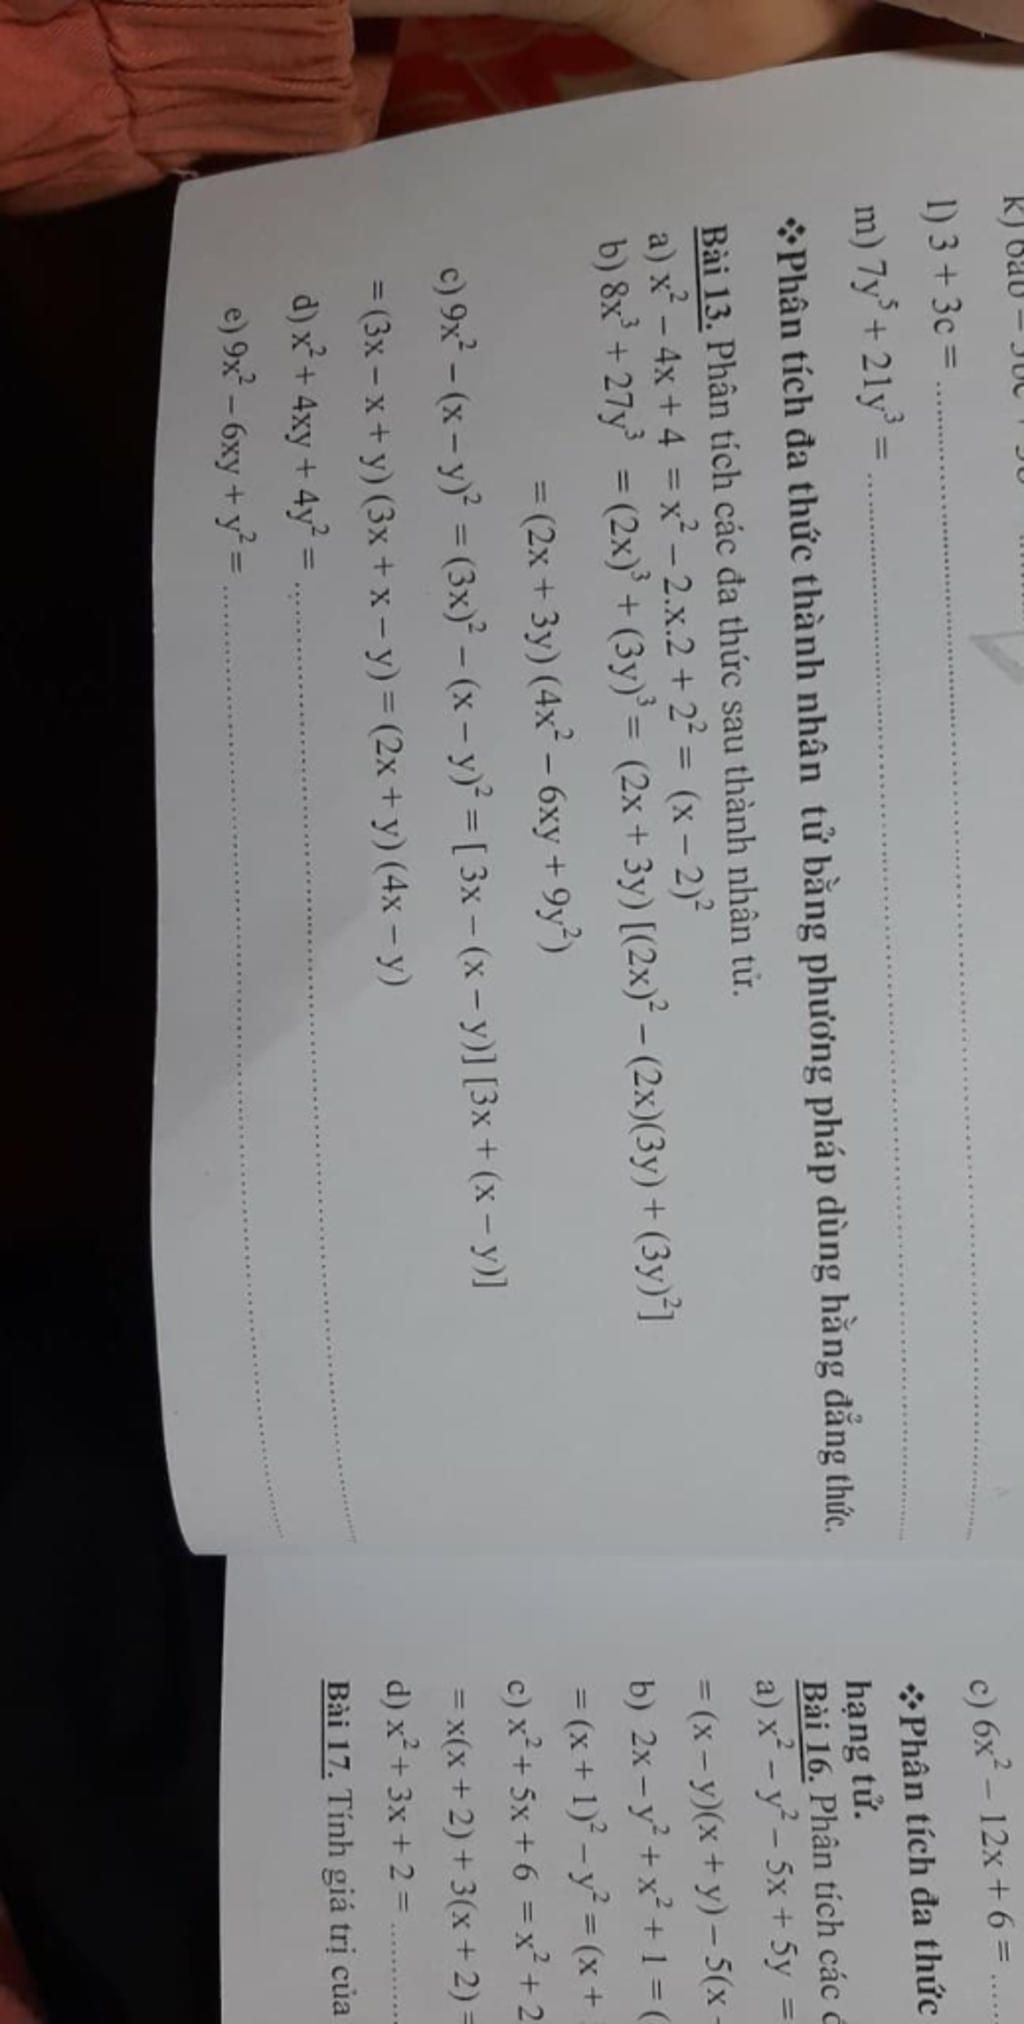 l) 3 + 3c = ..............
m) 7y⁵ + 21y³ = ..............
❖Phân tích đa thức thành nhân tử bằng phương pháp dùng hằng đẳng thức.
Bài 13. Phân tích các đa thức sau thành nhân tử.
a) x² – 4x + 4 = x² – 2.x.2 + 2² = (x – 2)²
b) 8x³ + 27y³ = (2x)³ + (3y)³ = (2x + 3y) [(2x)² – (2x)(3y) + (3y)²]
= (2x + 3y) (4x² – 6xy + 9y²)
c) 9x² – (x – y)² = (3x)² – (x – y)² = [ 3x – (x – y)] [3x + (x – y)]
= (3x – x + y) (3x + x – y) = (2x + y) (4x – y)
d) x² + 4xy + 4y² = ..............
e) 9x² – 6xy + y² = ..............
c) 6x² – 12x + 6 = .....
❖Phân tích đa thức
hạng tử.
Bài 16. Phân tích các
a) x² – y² – 5x + 5y =
= (x – y)(x + y) – 5(x
b) 2x – y² + x² + 1 = (
= (x + 1)² – y² = (x +
c) x² + 5x + 6 = x² + 2
= x(x + 2) + 3(x + 2) =
d) x² + 3x + 2 = ..........
Bài 17. Tính giá trị của